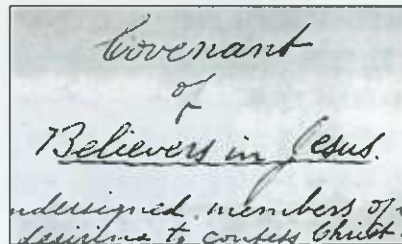 Covenant
of
Believers in Jesus.
ndersigned members of
desiring to confess Christ